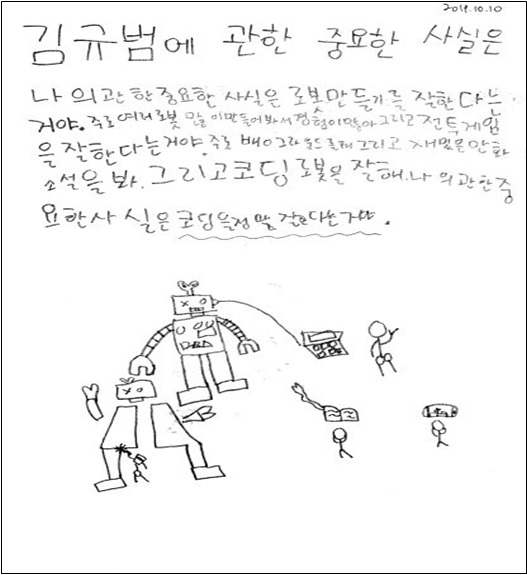 2019.10.10
김규범에 관한 중요한 사실은
나의관한중요한 사실은 로봇만들기를 잘한다는
거야. 주로 여러로봇 많이만들어봐서 경험이많아 그리고 전투게임
을 잘한다는거야. 주로 배 그리고 재밌은 만화
소설을 봐. 그리고코딩로봇을 잘해. 나의관한중
요한사실은 코딩을정말 다는거야.